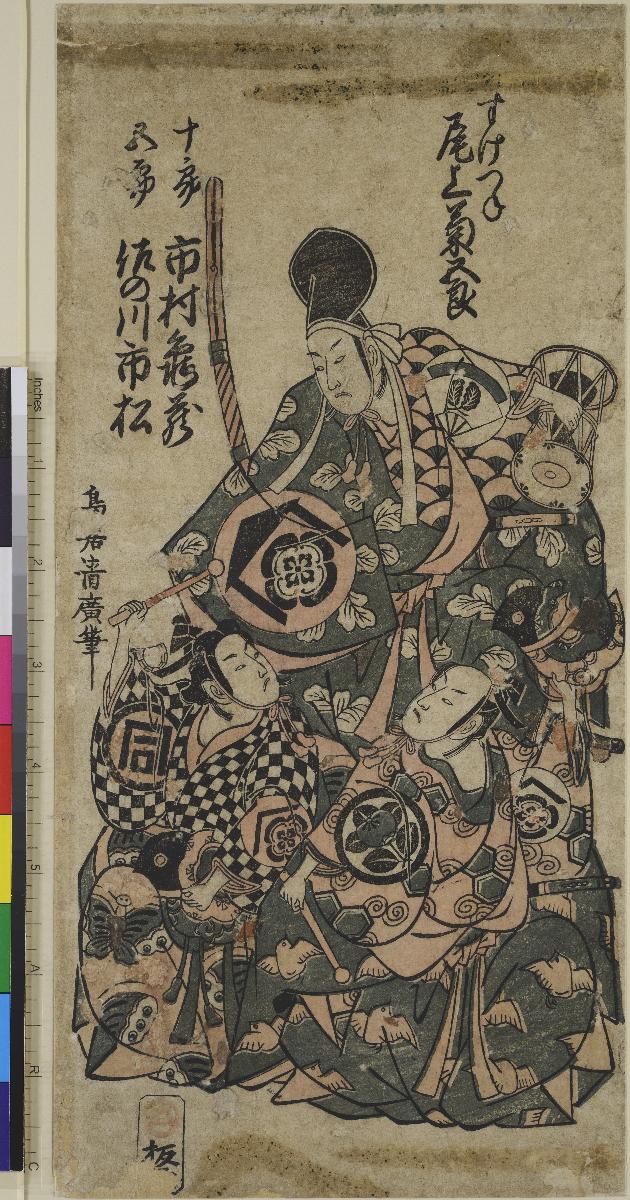 すけつね
尾上菊五郎
十郎
市村亀蔵
五郎
佐の川市松
鳥居清廣筆
同
板
Inches
1
2
3
4
5